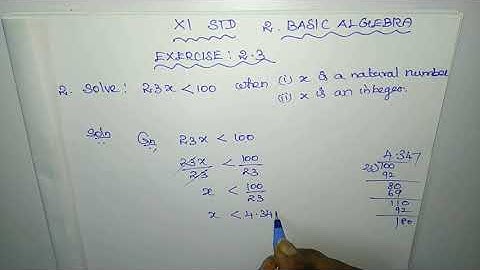 XI STD 2. BASIC ALGEBRA
EXERCISE: 2.3
2. Solve: 23x < 100 when (i) x is a natural number
(ii) x is an integer.
Soln Gn 23x < 100
23x/23 < 100/23
x < 100/23
x < 4.34
4.347
100
92
80
69
110
92
180